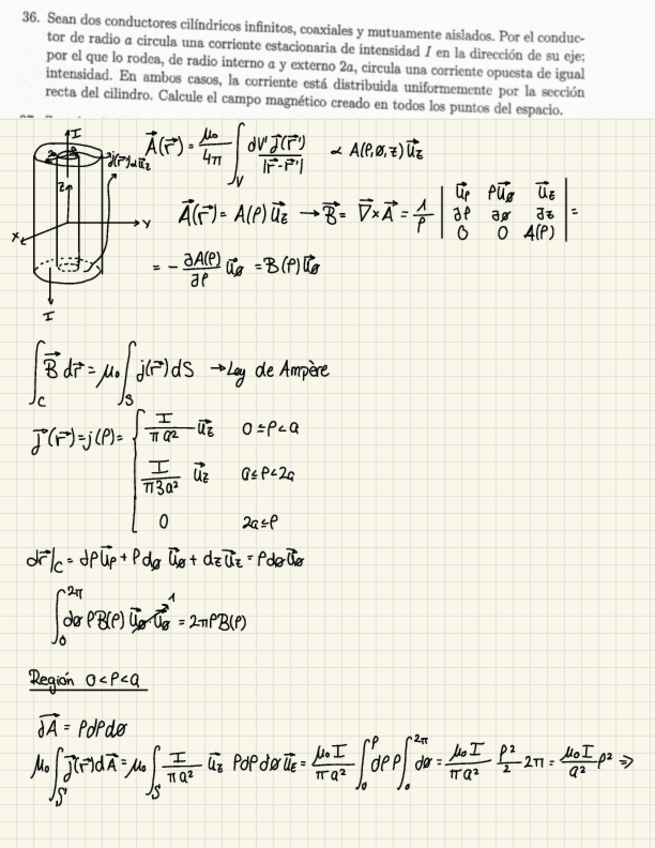 36. Sean dos conductores cilíndricos infinitos, coaxiales y mutuamente aislados. Por el conduc-
tor de radio a circula una corriente estacionaria de intensidad I en la dirección de su eje;
por el que lo rodea, de radio interno a y externo 2a, circula una corriente opuesta de igual
intensidad. En ambos casos, la corriente está distribuida uniformemente por la sección
recta del cilindro. Calcule el campo magnético creado en todos los puntos del espacio.
I
A⃗(r⃗) = μ₀/4π ∫_V dV' j⃗(r⃗')/|r⃗-r⃗'| α A(ρ,ø,z) u⃗z
j(r⃗) α u⃗z
z
Y
X
I
A⃗(r⃗) = A(ρ) u⃗z → B⃗ = ∇⃗×A⃗ = 1/ρ | u⃗ρ ρu⃗ø u⃗z |
| ∂ρ ∂ø ∂z | =
| 0 0 A(ρ) |
= - ∂A(ρ)/∂ρ u⃗ø = B(ρ) u⃗ø
∫_C B⃗ dr⃗ = μ₀ ∫_S j(r⃗) dS → Ley de Ampère
j⃗(r⃗) = j(ρ) = { I/πa² u⃗z 0≤ρ<a
I/π3a² u⃗z a≤ρ<2a
0 2a≤ρ
dr⃗|c = dρ u⃗ρ + ρdø u⃗ø + dz u⃗z = ρdø u⃗ø
∫₀^2π dø ρB(ρ) u⃗ø·u⃗ø 1 = 2πρB(ρ)
Región 0<ρ<a
dA⃗ = ρdρdø
μ₀ ∫_S j⃗(r⃗)dA⃗ = μ₀ ∫_S I/πa² u⃗z ρdρdø u⃗z = μ₀I/πa² ∫₀^ρ dρ ρ ∫₀^2π dø = μ₀I/πa² ρ²/2 2π = μ₀I/a² ρ² ⇒